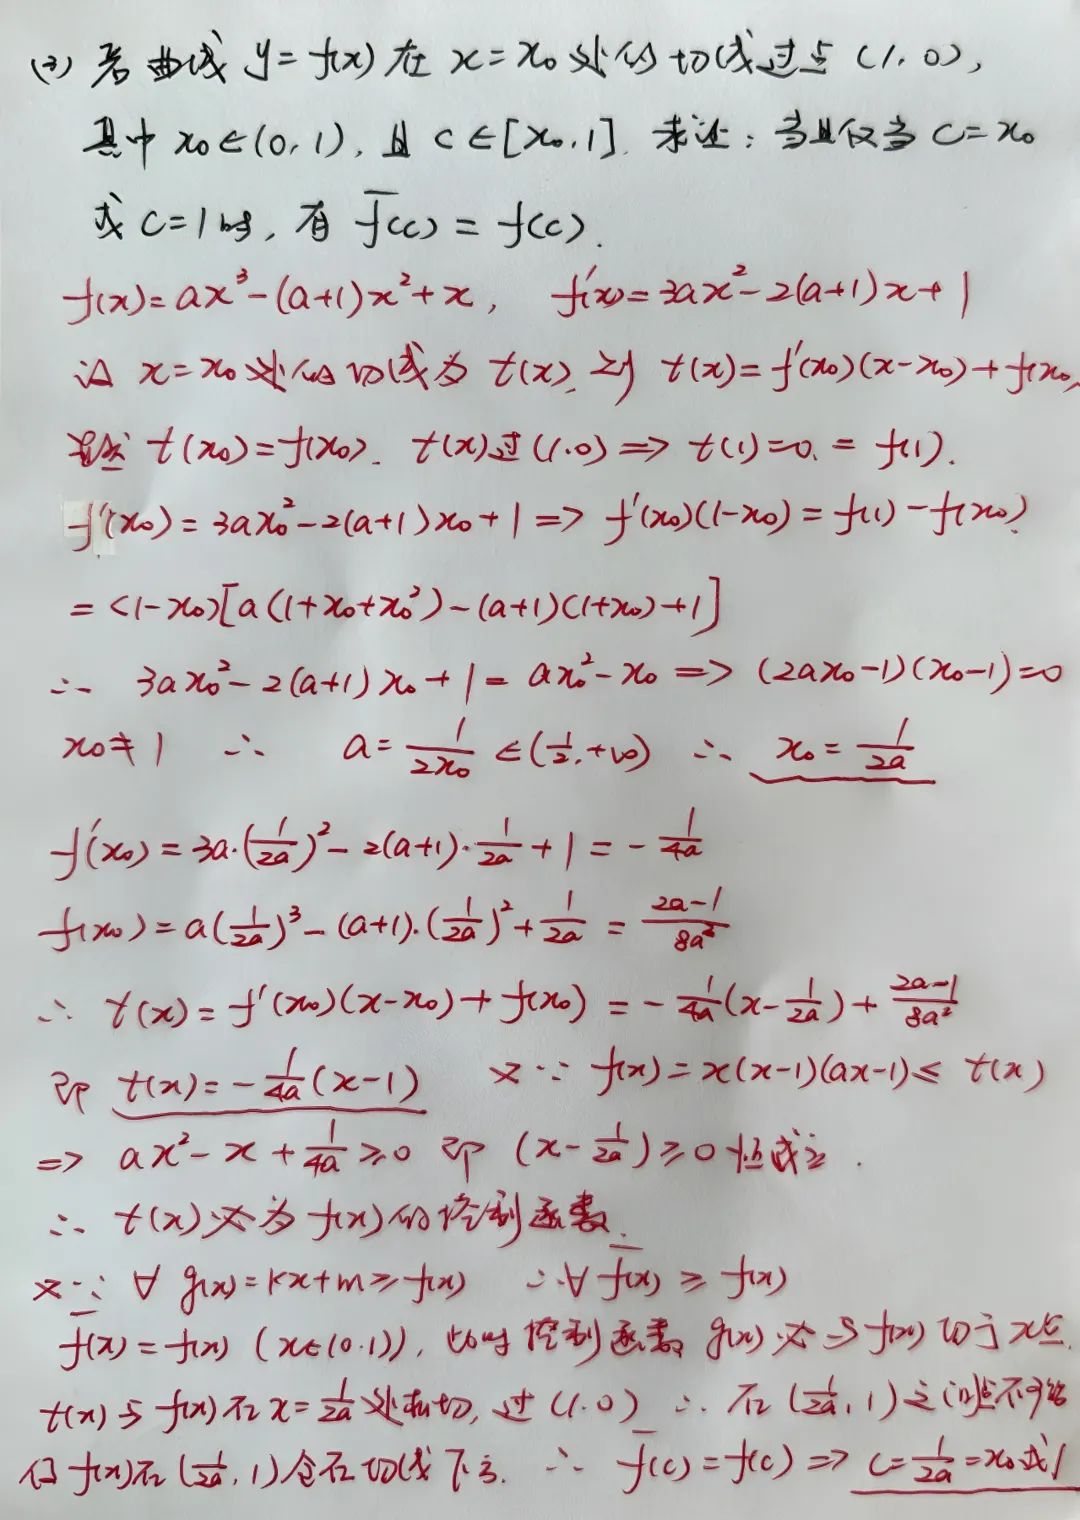 (3) 若曲线 y=f(x) 在 x=x₀ 处的切线过点 (1,0),
其中 x₀∈(0,1), 且 c∈[x₀,1]. 求证:当且仅当 c=x₀
或 c=1时, 有 f̄(c)=f(c).
f(x)=ax³-(a+1)x²+x, f'(x)=3ax²-2(a+1)x+1
设 x=x₀ 处的切线为 t(x), 则 t(x)=f'(x₀)(x-x₀)+f(x₀)
显然 t(x₀)=f(x₀). t(x)过(1.0) ⇒ t(1)=0.=f(1).
f'(x₀)=3ax₀²-2(a+1)x₀+1 ⇒ f'(x₀)(1-x₀)=f(1)-f(x₀)
=(1-x₀)[a(1+x₀+x₀²)-(a+1)(1+x₀)+1]
∴ 3ax₀²-2(a+1)x₀+1=ax₀²-x₀ ⇒ (2ax₀-1)(x₀-1)=0
x₀≠1 ∴ a=1/(2x₀)∈(1/2,+∞) ∴ x₀=1/(2a)
f'(x₀)=3a·(1/(2a))²-2(a+1)·1/(2a)+1=-1/(4a)
f(x₀)=a(1/(2a))³-(a+1).(1/(2a))²+1/(2a)=(2a-1)/(8a²)
∴ t(x)=f'(x₀)(x-x₀)+f(x₀)=-1/(4a)(x-1/(2a))+(2a-1)/(8a²)
即 t(x)=-1/(4a)(x-1) 又∵ f(x)=x(x-1)(ax-1)≤t(x)
⇒ ax²-x+1/(4a)≥0 即 (x-1/(2a))≥0 恒成立.
∴ t(x)必为 f(x)的控制函数.
又∵ ∀ g(x)=kx+m≥f(x) ∴∀ f̄(x)≥f(x)
f̄(x)=f(x) (x∈(0.1)), 此时控制函数 g(x)必与f(x)切于x点.
t(x)与f(x)在x=1/(2a)处相切, 过(1.0) ∴ 在(1/(2a),1)之间的点不可能
但f(x)在(1/(2a),1)会在切线下方. ∴ f̄(c)=f(c) ⇒ c=1/(2a)=x₀或1